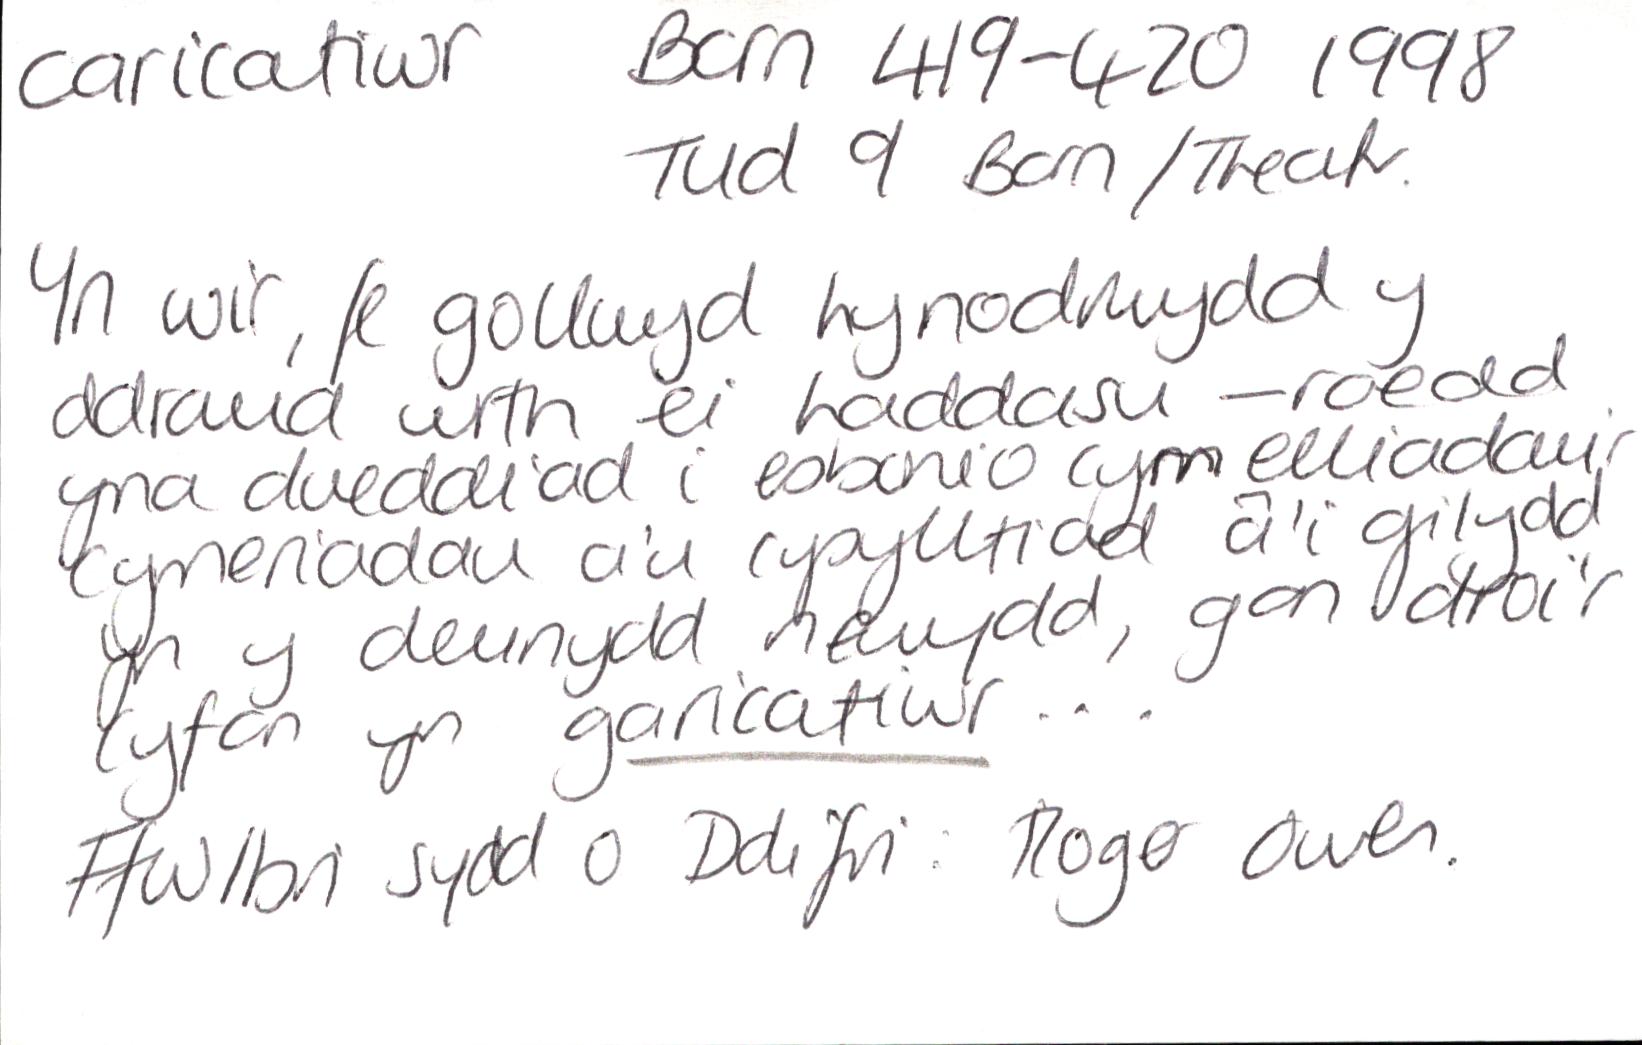 caricatiwr Barn 419-420 1998
Tud 9 Barn/Theatr.
Yn wir, fe gollwyd hynodrwydd y
ddrama wrth ei haddasu - roedd
yna dueddiad i esbonio cymelliadau'r
cymeriadau a'u cysylltiad â'i gilydd
yn y deunydd newydd, gan droi'r
cyfan yn garicatiwr...
Ffwlbri sydd o Ddifri: Roger Owen.